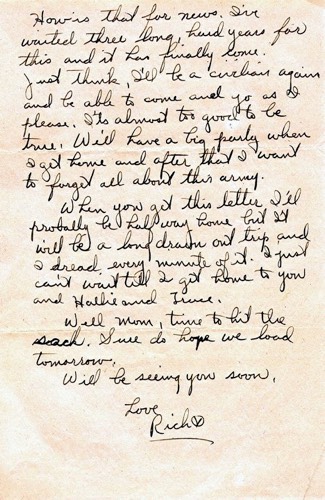 How is that for news. I've
waited three long, hard years for
this and it has finally come.
Just think, I'll be a civilian again
and be able to come and go as I
please. It's almost too good to be
true. We'll have a big party when
I get home and after that I want
to forget all about this army.
When you get this letter I'll
probably be half way home but it
will be a long drawn out trip and
I dread every minute of it. I just
can't wait till I get home to you
and Hallie and
Well Mom, time to hit the
sack. Sure do hope we load
tomorrow.
Will be seeing you soon.
Love
Rich